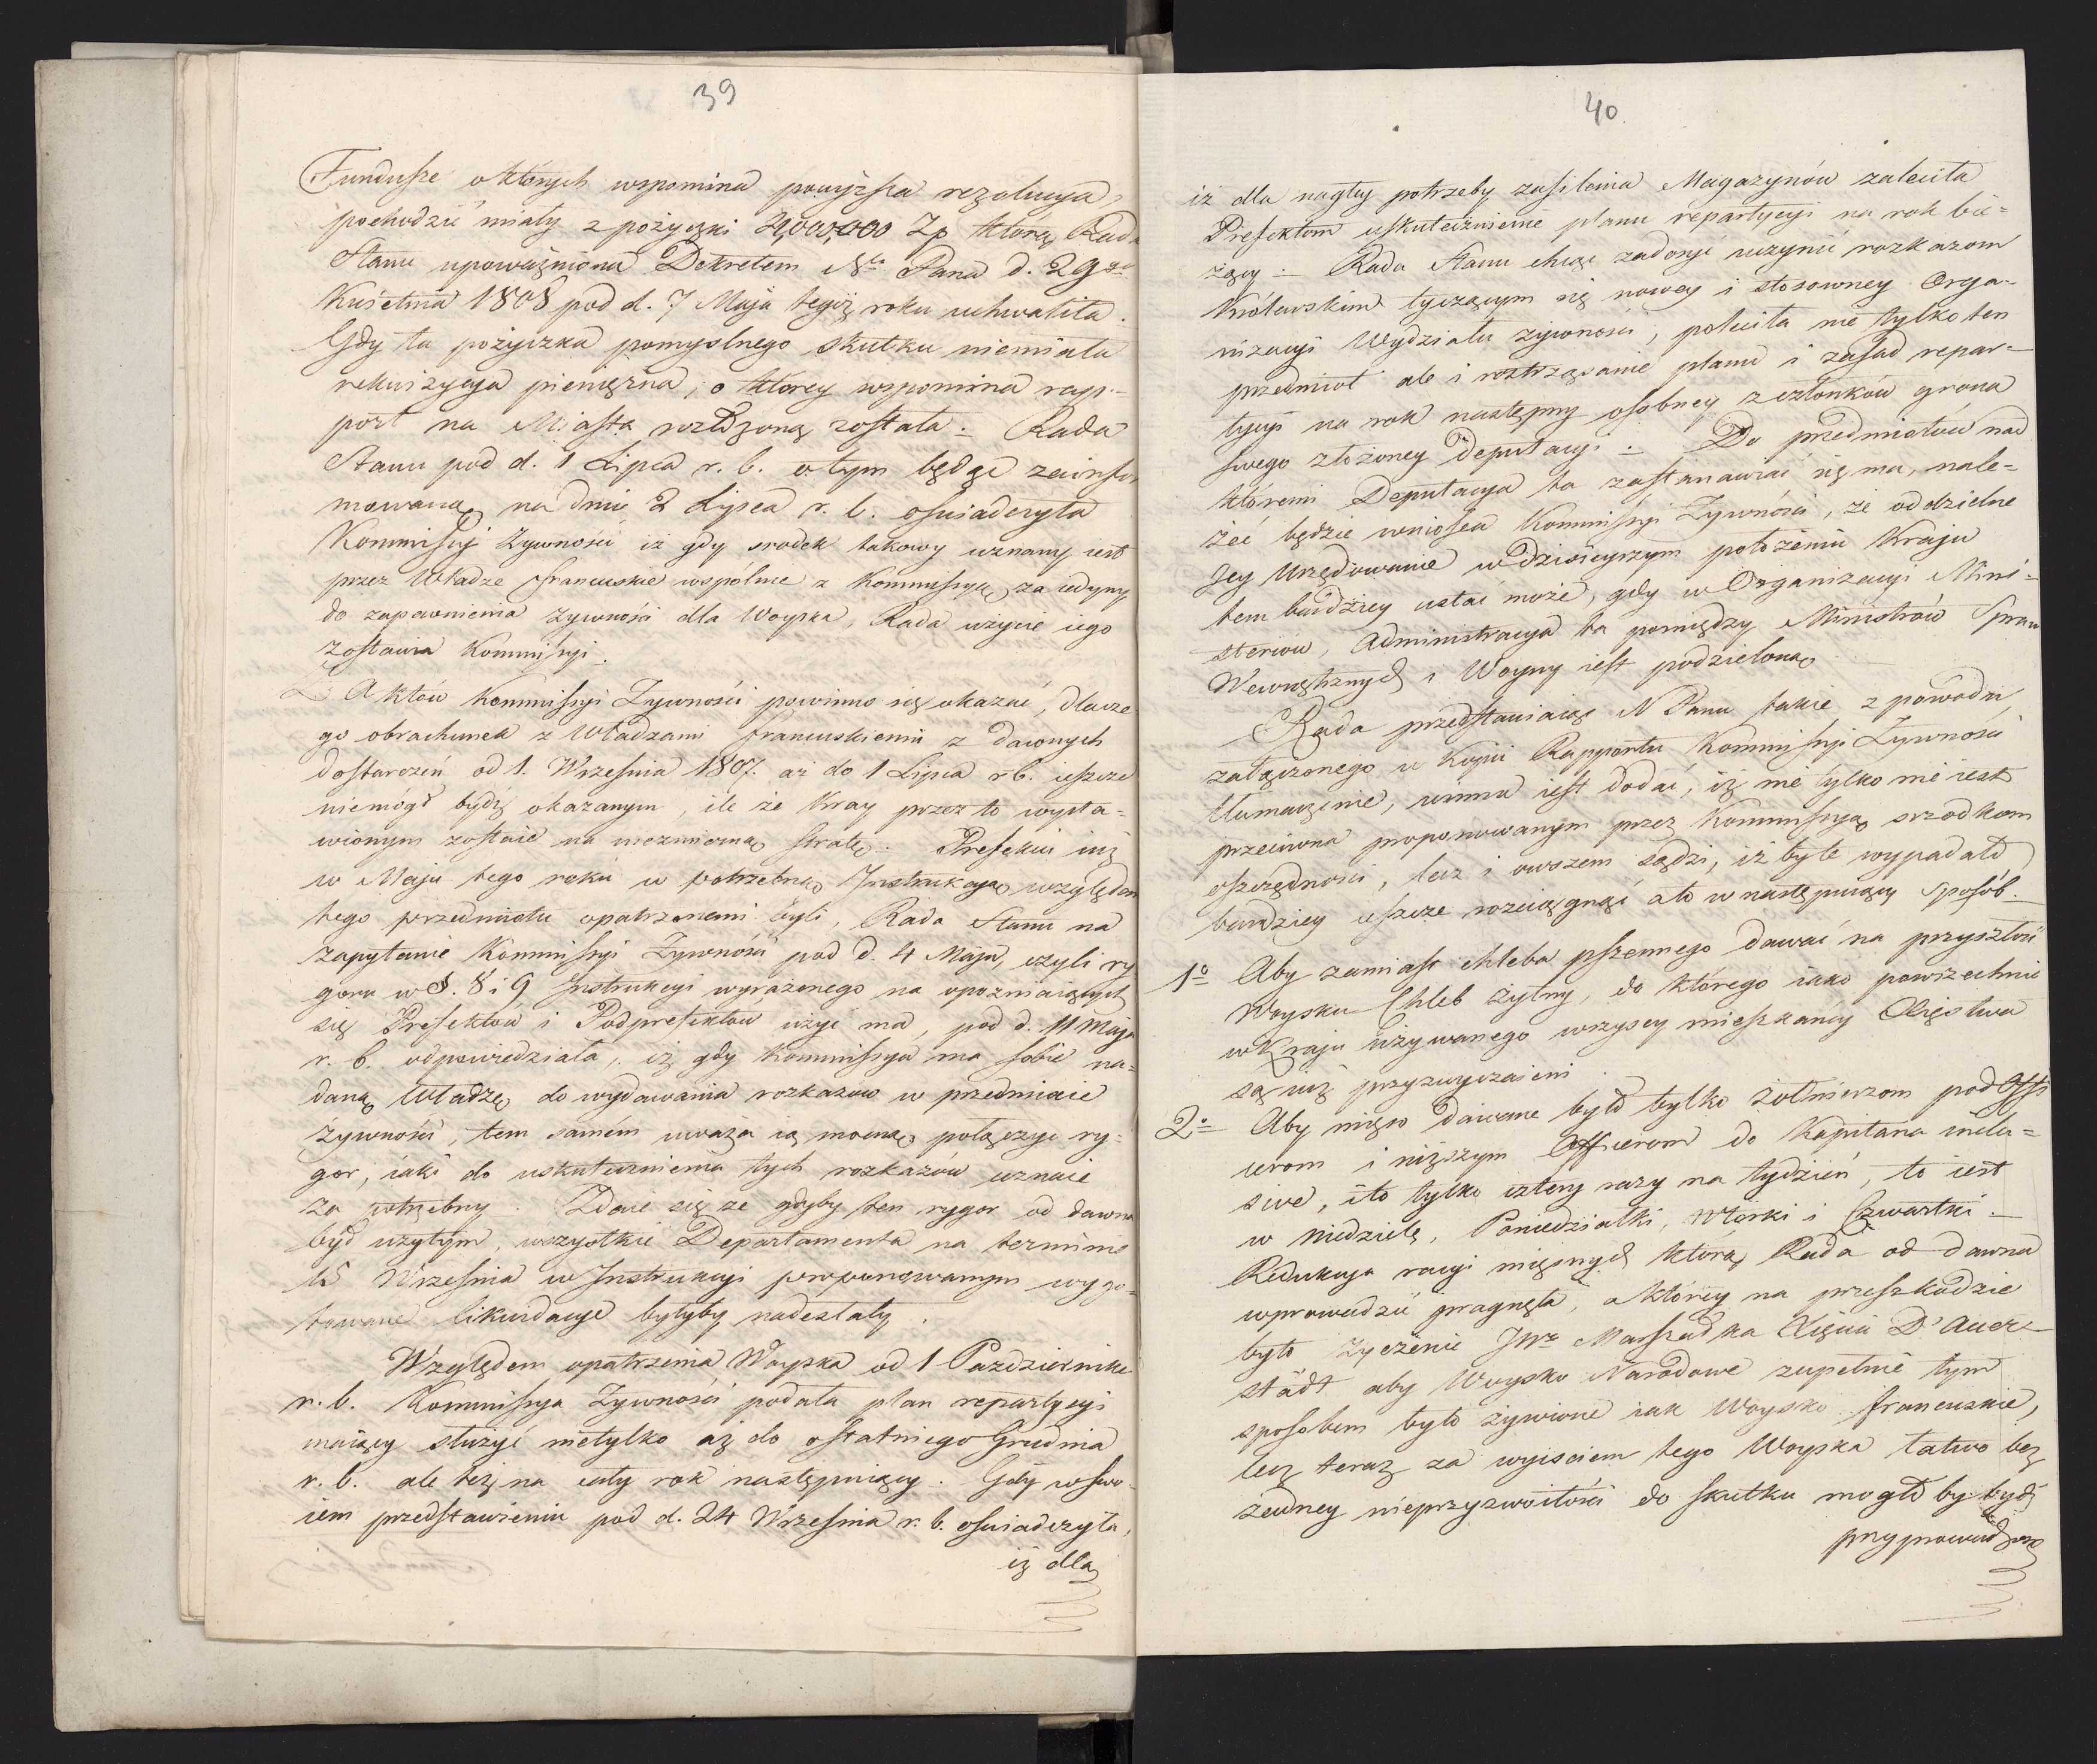 39
Fundusze o których wspomina powyższa rezolucya,
pochodzić miały z pożyczki 4,000,000 Zp którą Rada
Stanu upoważniona Dekretem Nго Pana d. 29go
Kwietnia 1808 pod d. 7 Maja tegoż roku uchwaliła.
Gdy ta pożyczka pomyslnego skutku niemiała
rekwizycyja pieniężna, o którey wspomina rap-
port na Miasta rozłożoną została. Rada
Stanu pod d. 1 Lipca r. b. otym będąc zainfor
mowaną, na dniu 2 Lipca r. b. oświadczyła
Kommissyj Żywności iż gdy srodek takowy uznany iest
przez Władze francuskie wspólnie z Kommissyą za iedyny
do zapewnienia żywności dla Woyska, Rada użycie iego
zostawia Kommissyi.
Z Aktów Kommissyi Żywności powinno się okazać, dlacze
go obrachunek z Władzami francuskiemi z dawnych
dostarczeń od 1. Września 1807. aż do 1 Lipca r.b. ieszcze
niemógł bydź okazanym, ile że Kray przez to wysta-
wionym zostaie na niezmierną stratę. Prefekci iuż
w Maju tego roku w potrzebną Instrukcyą względem
tego przedmiotu opatrzonemi byli, Rada Stanu na
zapytanie Kommissyi Żywności pod d. 4 Maja, czyli ry
goru w §. 8 i 9 Instrukcyi wyrażonego na opozniaiących
się Prefektów i Podprefektów użyć ma, pod d. 11 Maja
r. b. odpowiedziała, iż gdy Kommissya ma sobie na-
daną Władzę do wydawania rozkazow w przedmiocie
żywności, tem samem uważa ią mocną połączyć ry-
gor, iaki do uskutecznienia tych rozkazów uznaie
za potrzebny. Zdaie się że gdyby ten rygor od dawna
był użytym, wszystkie Departamenta na terminie
15 Września w Instrukcyi proponowanym wygo-
towane likwidacye byłyby nadesłały.
Względem opatrzenia Woyska od 1 Pazdziernika
r. b. Kommissya Żywności podała plan repartycyi
maiący służyć nietylko aż do ostatniego Grudnia
r. b. ale też na cały rok następuiący. Gdy w swo-
iem przedstawieniu pod d. 24 Września r. b. oświadczyła,
iż dla
40
iż dla nagłey potrzeby zasilenia Magazynów zaleciła
Prefektom uskutecznienie planu repartycyi na rok bie-
żący. Rada Stanu chcąc zadosyć uczynić rozkazom
Królewskim tyczącym się nowey i stosowney Orga-
nizacyi Wydziału żywności, poleciła nie tylko ten
przedmiot ale i roztrząsanie planu i zasad repar-
tycyi na rok następny osobney z członków grona
swego złożoney Deputacyi. Do przedmiotów nad
któremi Deputacya ta zastanawiać się ma, nale-
żeć będzie wniosek Kommissyi Żywności, że oddzielne
Jey Urzędowanie w dzisieyszym położeniu Kraju
tem bardziey ustać może, gdy w Organizacyi Mini-
steriów, Administracya ta pomiędzy Ministrów Spraw
Wewnętrznych i Woyny iest podzieloną.
Rada przedstawiaiąc N Panu takie z powodu
załączonego w Kopii Rapportu Kommissyi Żywności
tłumaczenie, winna iest dodać, iż nie tylko nie iest
przeciwna proponowanym przez Kommissyą srzodkom
oszczędności, lecz i owszem sądzi, iż byłe wypadało
bardziey ieszcze rozciągnąć a to w następuiący sposób.
1o Aby zamiast chleba pszennego dawać na przyszłość
Woysku Chleb żytny, do którego iako powszechnie
w Kraju używanego wszyscy mieszkańcy Xięstwa
są iuż przyzwyczaieni.
2o Aby mięso dawane było tylko żołnierzom podoffi
cerom i niższym Officerom do Kapitana inclu-
sive, i to tylko cztery razy na tydzień, to iest
w Niedziele, Poniedziałki, Wtorki i Czwartki.
Redukcya racyi mięsnych którą Rada od dawna
wprowadzić pragnęła, a którey na przeszkodzie
było życzenie JWo Marszałka Xięcia D'Auer-
städt aby Woysko Narodowe zupełnie tym
sposobem było żywione iak Woysko francuzkie,
lecz teraz za wyisciem tego Woyska łatwo bez
żadney nieprzyzwoitości do skutku mogłoby bydź
przyprowadzone